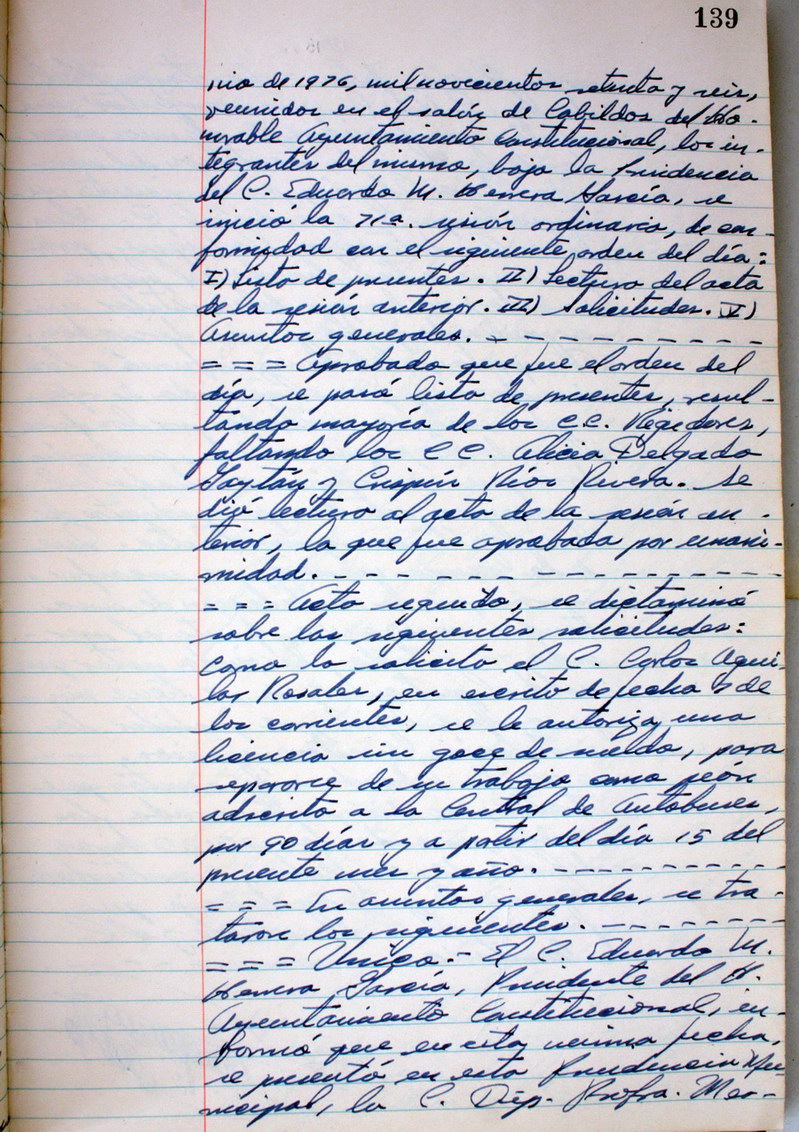 139
nio de 1976, mil novecientos setenta y seis,
reunidos en el salón de Cabildos del Ho-
norable Ayuntamiento Constitucional, los in-
tegrantes del mismo, bajo la Presidencia
del C. Eduardo M. Herrera García, se
inició la 71a. sesión ordinaria, de con-
formidad con el siguiente orden del día:
I) Lista de presentes. II) Lectura del acta
de la sesión anterior. III) Solicitudes. V)
Asuntos generales. - - - - - - - - - -
= = = Aprobado que fue el orden del
día, se pasó lista de presentes, resul-
tando mayoría de los CC. Regidores,
faltando los CC. Alicia Delgado
Gaytán y Crispín Ríos Rivera. Se
dió lectura al acta de la sesión an-
terior, la que fue aprobada por unani-
midad. - - - - - - - - - - - - -
= = = Acto seguido, se dictaminó
sobre las siguientes solicitudes:
Como lo solicita el C. Carlos Agui-
lar Rosales, en escrito de fecha de
los corrientes, se le autoriza una
licencia sin goce de sueldo, para
separarse de su trabajo como peón
adscrito a la Central de Autobuses,
por 90 días y a partir del día 15 del
presente mes y año. - - - - - - - - - -
= = = En asuntos generales, se tra-
taron los siguientes. - - - - - - - -
= = = Unico.- El C. Eduardo M.
Herrera García, Presidente del H.
Ayuntamiento Constitucional, in-
formó que en esta misma fecha,
se presentó en esta Presidencia Mu-
nicipal, la C. Dip. Profra. Mer-